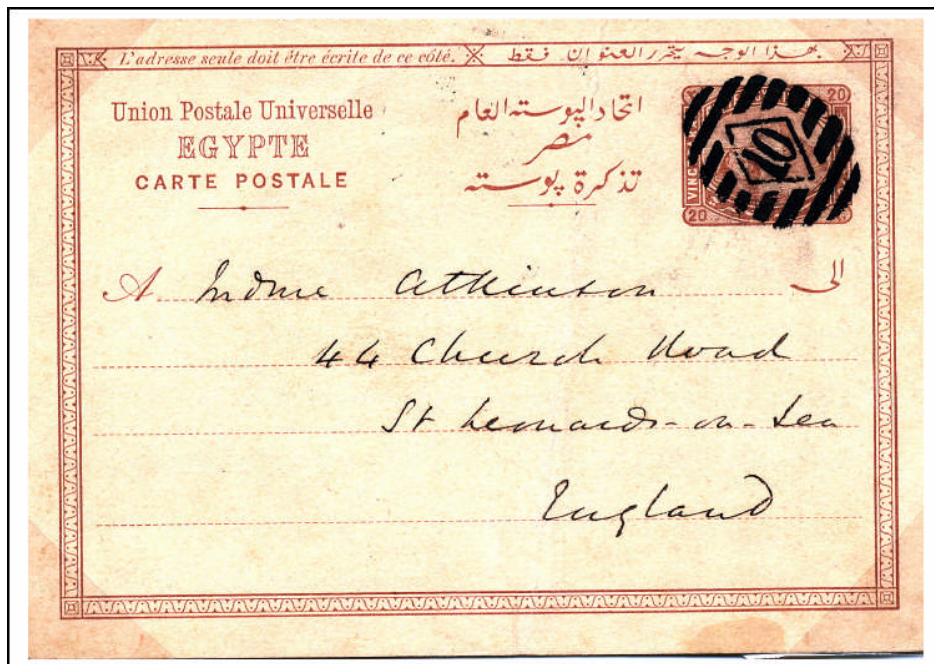 L'adresse seule doit être écrite de ce côté. بهذا الوجه يتحرر العنوان فقط
Union Postale Universelle
EGYPTE
CARTE POSTALE
اتحاد البوسته العام
مصر
تذكرة بوسته
20
VINC
20
10
A Mdme Atkinson الى
44 Church Road
St Leonards-on-Sea
England